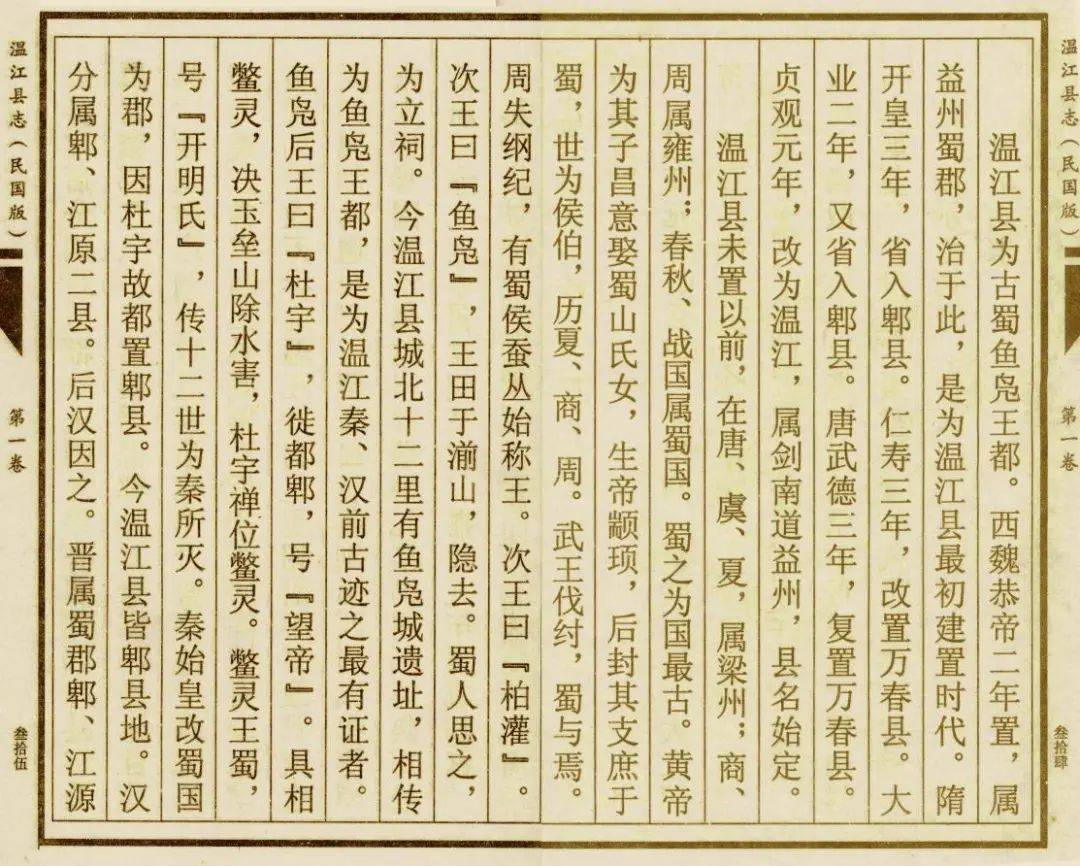 温江县志（民国版）
第一卷
叁拾肆
温江县为古蜀鱼凫王都。西魏恭帝二年置，属
益州蜀郡，治于此，是为温江县最初建置时代。隋
开皇三年，省入郫县。仁寿三年，改置万春县。大
业二年，又省入郫县。唐武德三年，复置万春县。
贞观元年，改为温江，属剑南道益州，县名始定。
温江县未置以前，在唐、虞、夏，属梁州；商、
周属雍州；春秋、战国属蜀国。蜀之为国最古。黄帝
为其子昌意娶蜀山氏女，生帝颛顼，后封其支庶于
蜀，世为侯伯，历夏、商、周。武王伐纣，蜀与焉。
周失纲纪，有蜀侯蚕丛始称王。次王曰『柏灌』。
次王曰『鱼凫』，王田于湔山，隐去。蜀人思之，
为立祠。今温江县城北十二里有鱼凫城遗址，相传
为鱼凫王都，是为温江秦、汉前古迹之最有证者。
鱼凫后王曰『杜宇』，徙都郫，号『望帝』。具相
鳖灵，决玉垒山除水害，杜宇禅位鳖灵。鳖灵王蜀，
号『开明氏』，传十二世为秦所灭。秦始皇改蜀国
为郡，因杜宇故都置郫县。今温江县皆郫县地。汉
分属郫、江原二县。后汉因之。晋属蜀郡郫、江源
温江县志（民国版）
第一卷
叁拾伍